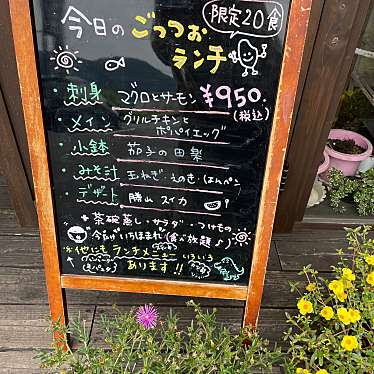 限定20食
今日の ごっつお
ランチ
・刺身 マグロとサーモン ¥950.
(税込)
・メイン グリルチキンと
ポパイエッグ
・小鉢 茄子の田楽
・みそ汁 玉ねぎ・えのき・はんぺん
・デザート 勝山スイカ
+ 茶碗蒸し・サラダ・つけもの
いちほまれ 食べ放題♪
※他にもランチメニューいろいろ
あります!!